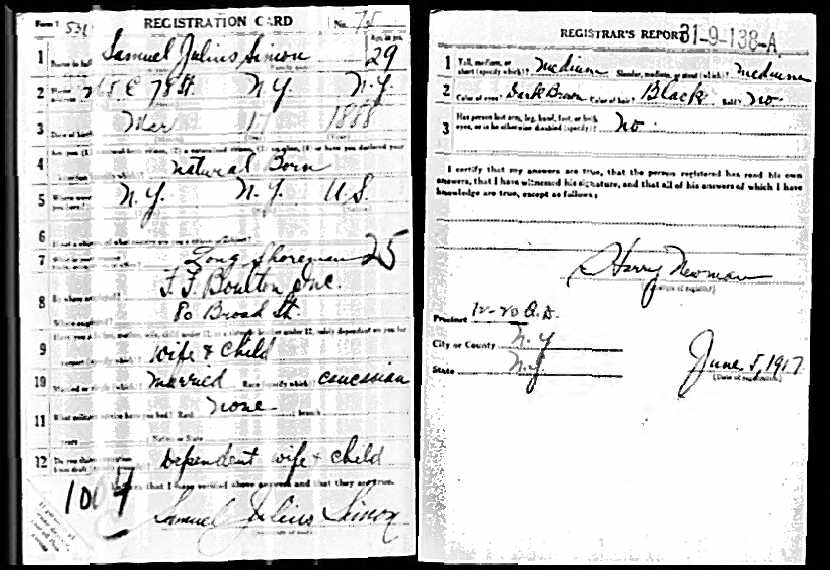 Form 1 531 REGISTRATION CARD No. 75
1 Name in full Samuel Julius Simon Age in yrs. 29
2 E 79 St. N.Y. N.Y.
3 Date of birth Mar 17 1888
4 Are you (1) a natural born citizen, (2) a naturalized citizen, (3) an alien, (4) or have you declared your
(specify which)? Natural Born
5 Where were you born? N.Y. N.Y. U.S.
6 If not a citizen, of what country are you a citizen or subject?
7 Long Shoreman 25
8 By whom employed? Boulton Inc.
Where employed? 80 Broad St.
9 Have you a father, mother, wife, child under 12, or a sister or brother under 12, solely dependent on you for
support (specify which)? Wife & Child
10 Married or single (which)? Married Race (specify which)? Caucasian
11 What military service have you had? Rank None branch
Years Nation or State
12 Do you claim exemption from draft Dependent wife & child
that I have verified above answers and that they are true.
Samuel Julius Simon
REGISTRAR'S REPORT 31-9-138-A
1 Tall, medium, or short (specify which)? Medium Slender, medium, or stout (which)? Medium
2 Color of eyes? Dark Brown Color of hair? Black Bald? No
3 Has person lost arm, leg, hand, foot, or both eyes, or is he otherwise disabled (specify)? No
I certify that my answers are true, that the person registered has read his own
answers, that I have witnessed his signature, and that all of his answers of which I have
knowledge are true, except as follows:
Harry Newman
(Signature of registrar)
Precinct 12-20 A.D.
City or County N.Y.
State N.Y.
June 5, 1917
(Date of registration)